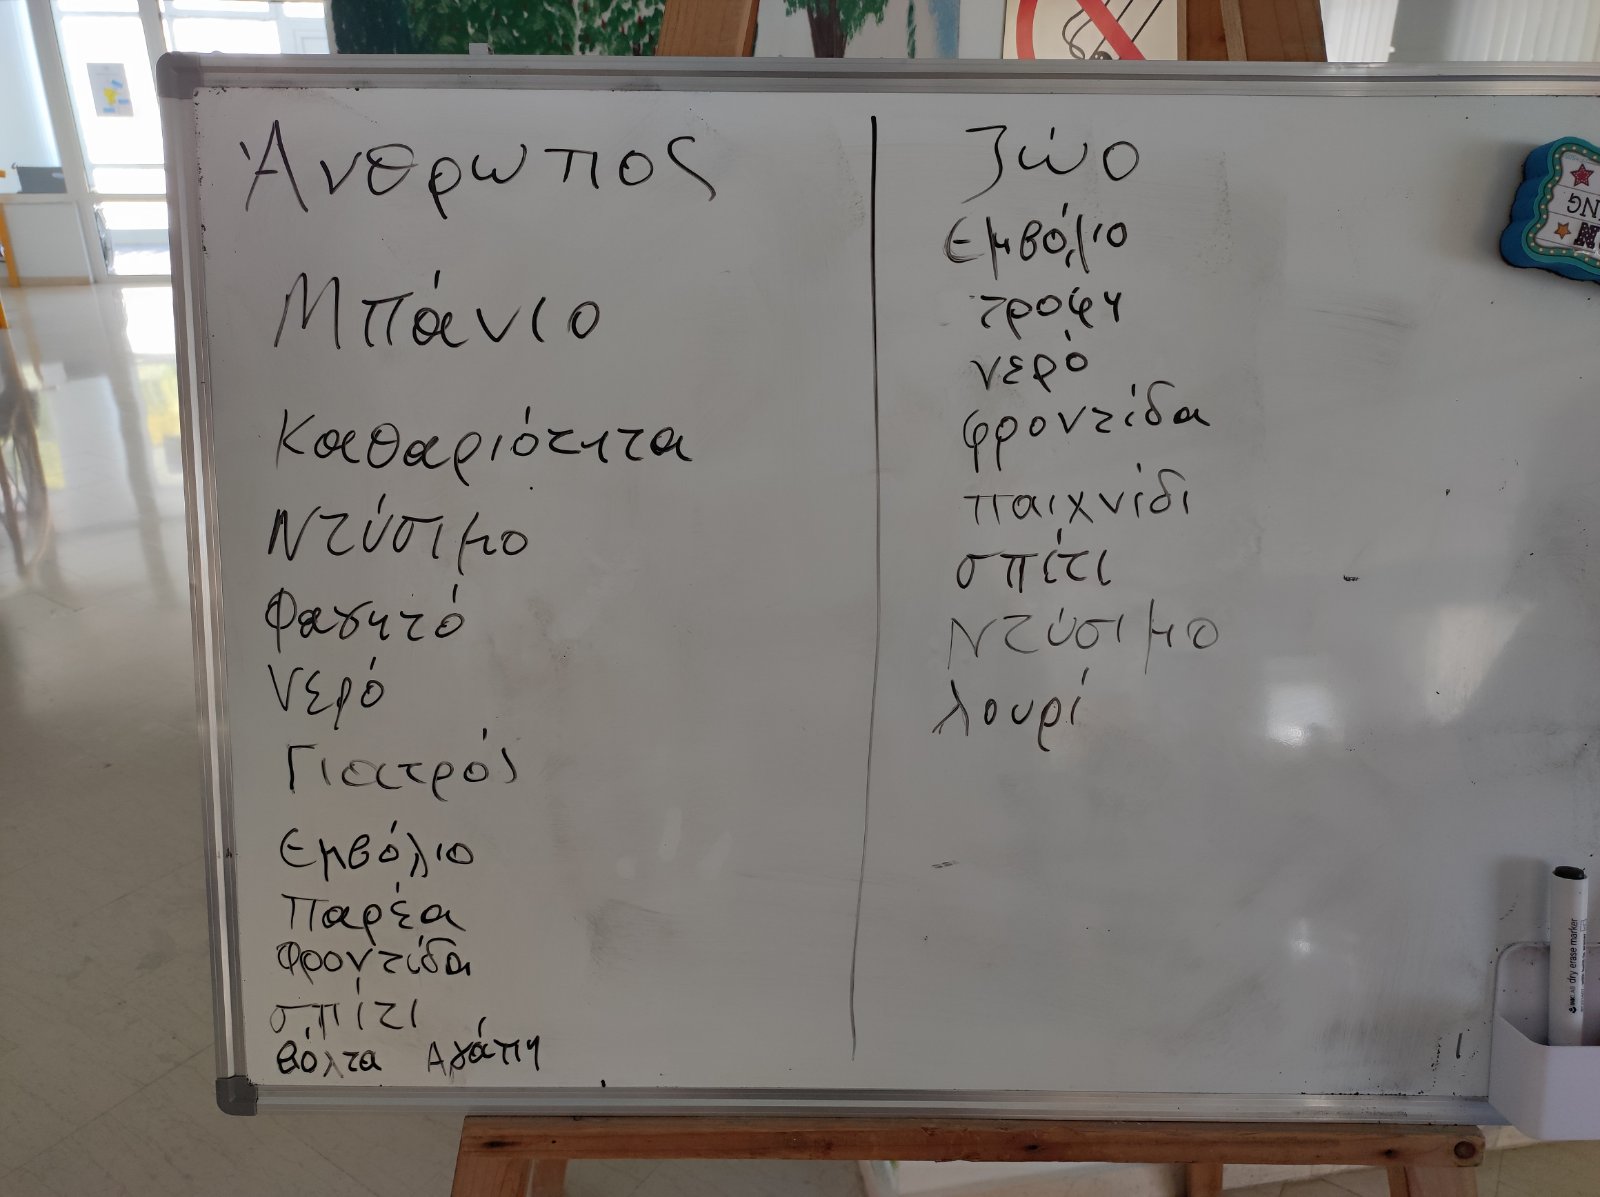 Άνθρωπος
Μπάνιο
Καθαριότητα
Ντύσιμο
Φαγητό
Νερό
Γιατρός
Εμβόλιο
Παρέα
Φροντίδα
σπίτι
βόλτα Αγάπη
Ζώο
Εμβόλιο
τροφη
νερό
φροντίδα
παιχνίδι
σπίτι
Ντύσιμο
λουρί
dry erase marker